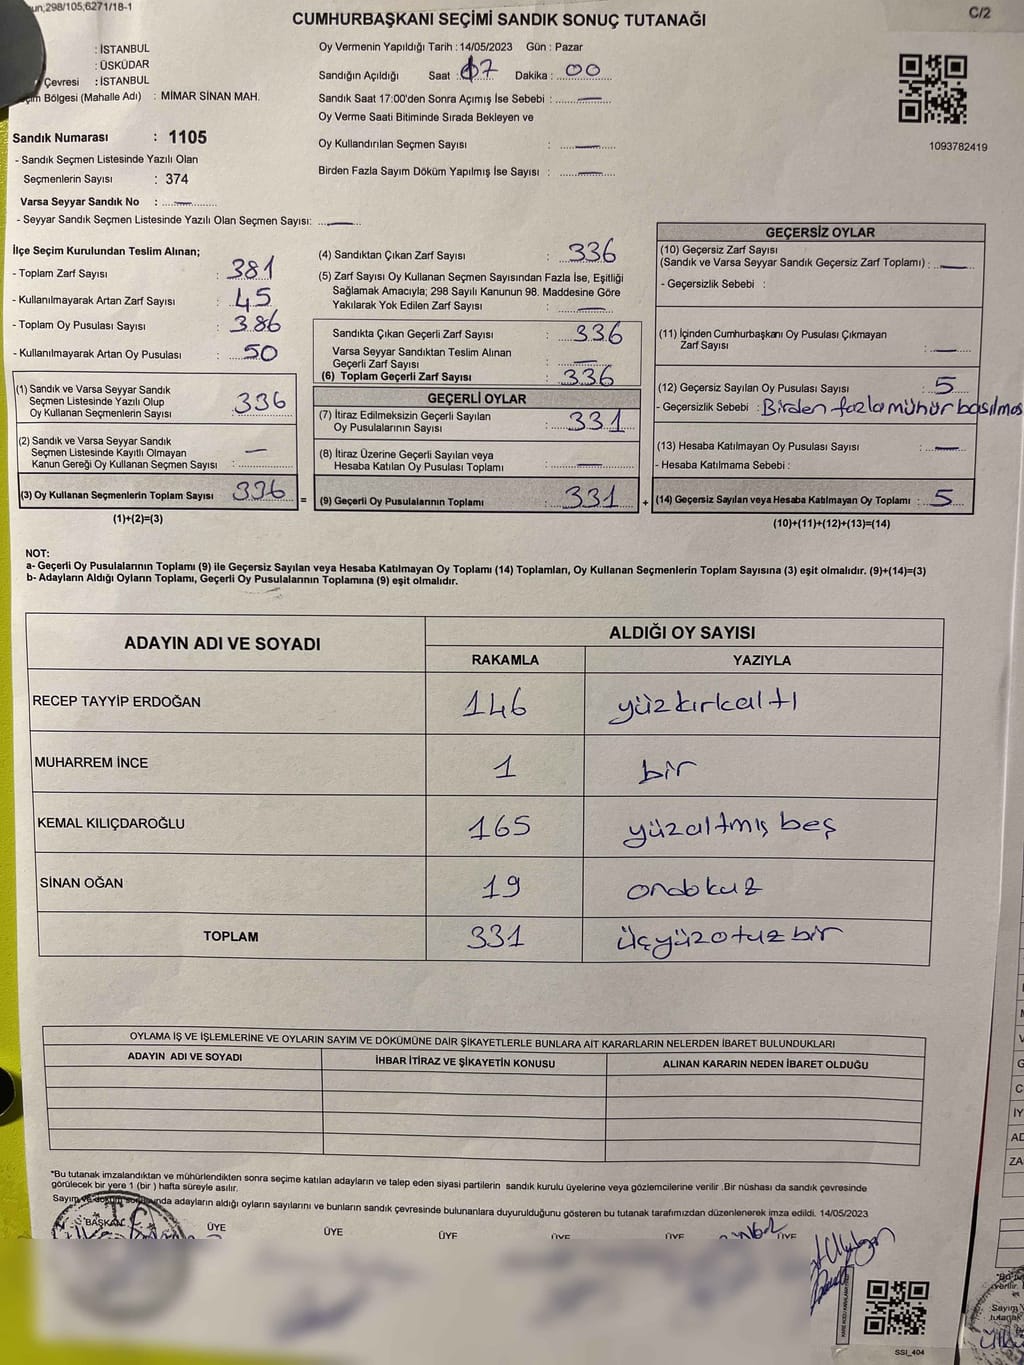 un;298/105;6271/18-1
C/2
CUMHURBAŞKANI SEÇİMİ SANDIK SONUÇ TUTANAĞI
: İSTANBUL
: ÜSKÜDAR
Çevresi : İSTANBUL
Bölgesi (Mahalle Adı) : MİMAR SİNAN MAH.
Sandık Numarası : 1105
- Sandık Seçmen Listesinde Yazılı Olan
Seçmenlerin Sayısı : 374
Varsa Seyyar Sandık No : —
- Seyyar Sandık Seçmen Listesinde Yazılı Olan Seçmen Sayısı: —
Oy Vermenin Yapıldığı Tarih : 14/05/2023 Gün : Pazar
Sandığın Açıldığı Saat : 07 Dakika : 00
Sandık Saat 17:00'den Sonra Açımış İse Sebebi : —
Oy Verme Saati Bitiminde Sırada Bekleyen ve
Oy Kullandırılan Seçmen Sayısı : —
Birden Fazla Sayım Döküm Yapılmış İse Sayısı : —
1093782419
İlçe Seçim Kurulundan Teslim Alınan;
- Toplam Zarf Sayısı : 381
- Kullanılmayarak Artan Zarf Sayısı : 45
- Toplam Oy Pusulası Sayısı : 386
- Kullanılmayarak Artan Oy Pusulası : 50
(1) Sandık ve Varsa Seyyar Sandık
Seçmen Listesinde Yazılı Olup
Oy Kullanan Seçmenlerin Sayısı 336
(2) Sandık ve Varsa Seyyar Sandık
Seçmen Listesinde Kayıtlı Olmayan
Kanun Gereği Oy Kullanan Seçmen Sayısı : —
(3) Oy Kullanan Seçmenlerin Toplam Sayısı 336 =
(1)+(2)=(3)
(4) Sandıktan Çıkan Zarf Sayısı : 336
(5) Zarf Sayısı Oy Kullanan Seçmen Sayısından Fazla İse, Eşitliği
Sağlamak Amacıyla; 298 Sayılı Kanunun 98. Maddesine Göre
Yakılarak Yok Edilen Zarf Sayısı : —
Sandıkta Çıkan Geçerli Zarf Sayısı : 336
Varsa Seyyar Sandıktan Teslim Alınan
Geçerli Zarf Sayısı : —
(6) Toplam Geçerli Zarf Sayısı : 336
GEÇERLİ OYLAR
(7) İtiraz Edilmeksizin Geçerli Sayılan
Oy Pusulalarının Sayısı : 331
(8) İtiraz Üzerine Geçerli Sayılan veya
Hesaba Katılan Oy Pusulası Toplamı : —
(9) Geçerli Oy Pusulalarının Toplamı : 331 +
GEÇERSİZ OYLAR
(10) Geçersiz Zarf Sayısı
(Sandık ve Varsa Seyyar Sandık Geçersiz Zarf Toplamı) : —
- Geçersizlik Sebebi :
(11) İçinden Cumhurbaşkanı Oy Pusulası Çıkmayan
Zarf Sayısı : —
(12) Geçersiz Sayılan Oy Pusulası Sayısı : 5
- Geçersizlik Sebebi : Birden fazla mühür basılmas
(13) Hesaba Katılmayan Oy Pusulası Sayısı : —
- Hesaba Katılmama Sebebi :
(14) Geçersiz Sayılan veya Hesaba Katılmayan Oy Toplamı : 5
(10)+(11)+(12)+(13)=(14)
NOT:
a- Geçerli Oy Pusulalarının Toplamı (9) ile Geçersiz Sayılan veya Hesaba Katılmayan Oy Toplamı (14) Toplamları, Oy Kullanan Seçmenlerin Toplam Sayısına (3) eşit olmalıdır. (9)+(14)=(3)
b- Adayların Aldığı Oyların Toplamı, Geçerli Oy Pusulalarının Toplamına (9) eşit olmalıdır.
ADAYIN ADI VE SOYADI
ALDIĞI OY SAYISI
RAKAMLA YAZIYLA
RECEP TAYYİP ERDOĞAN 146 yüzkırkaltı
MUHARREM İNCE 1 bir
KEMAL KILIÇDAROĞLU 165 yüzaltmış beş
SİNAN OĞAN 19 ondokuz
TOPLAM 331 üçyüzotuzbir
OYLAMA İŞ VE İŞLEMLERİNE VE OYLARIN SAYIM VE DÖKÜMÜNE DAİR ŞİKAYETLERLE BUNLARA AİT KARARLARIN NELERDEN İBARET BULUNDUKLARI
ADAYIN ADI VE SOYADI İHBAR İTİRAZ VE ŞİKAYETİN KONUSU ALINAN KARARIN NEDEN İBARET OLDUĞU
*Bu tutanak imzalandıktan ve mühürlendikten sonra seçime katılan adayların ve talep eden siyasi partilerin sandık kurulu üyelerine veya gözlemcilerine verilir .Bir nüshası da sandık çevresinde
görülecek bir yere 1 (bir ) hafta süreyle asılır.
Sayım ve döküm sonucunda adayların aldığı oyların sayılarını ve bunların sandık çevresinde bulunanlara duyurulduğunu gösteren bu tutanak tarafımızdan düzenlenerek imza edildi. 14/05/2023
BAŞKAN ÜYE ÜYE ÜYE ÜYE ÜYE ÜYE
SSI_404